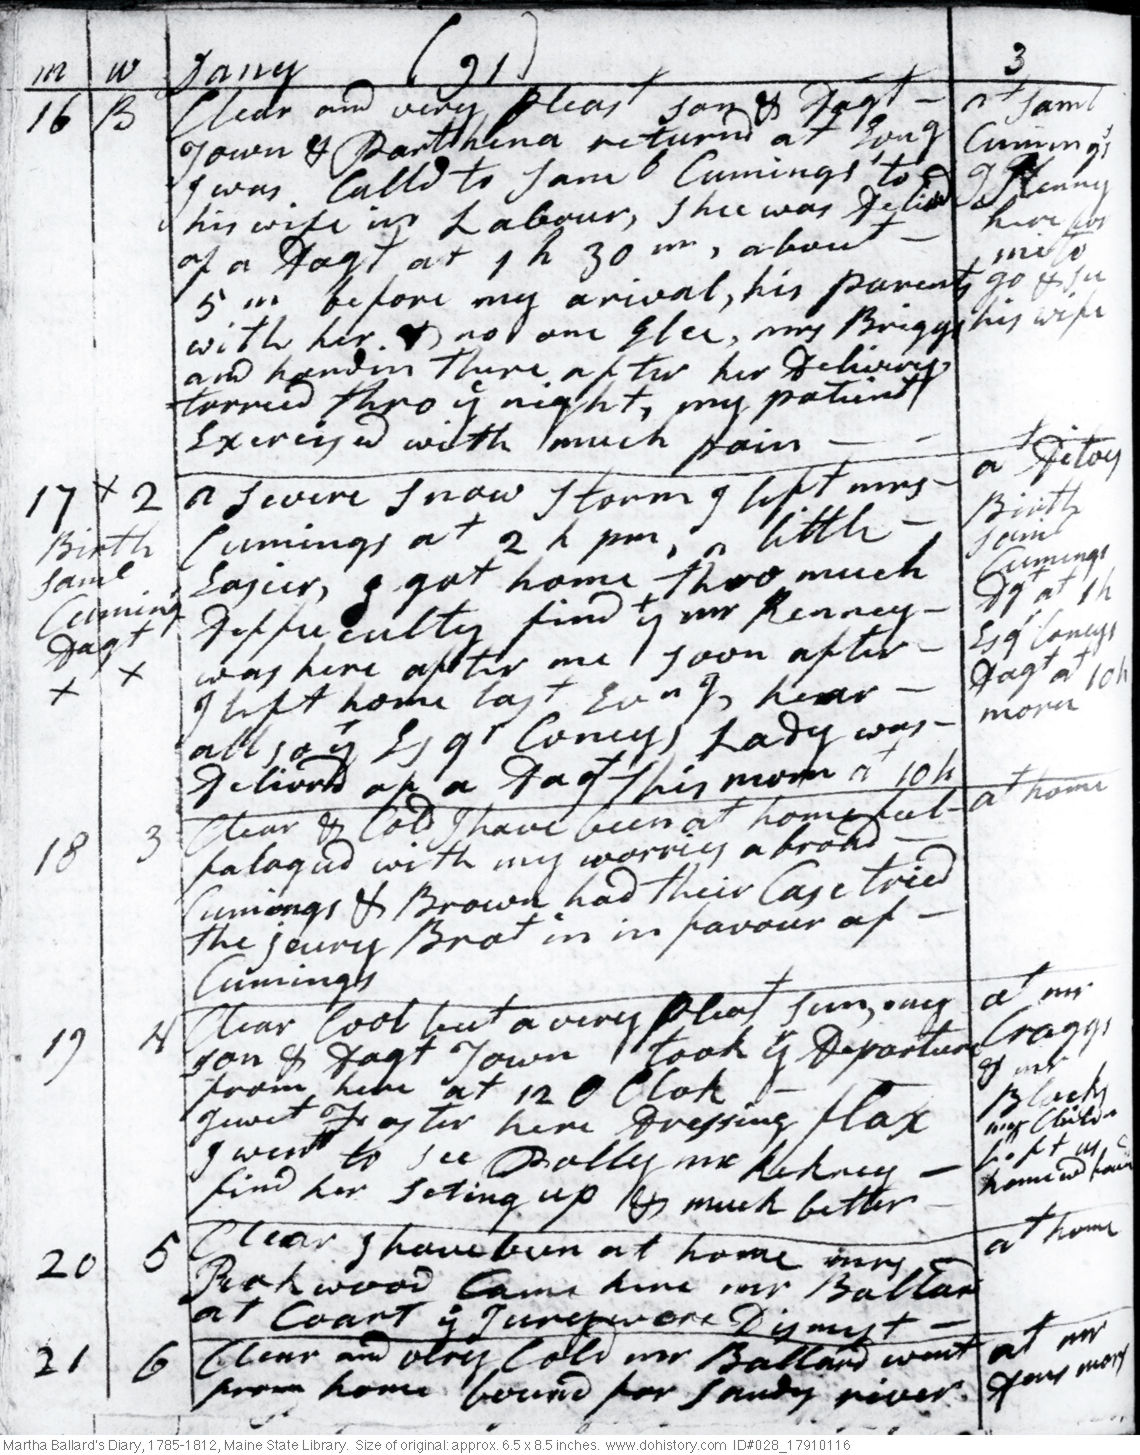 m w Jany (91) 3
16 B Clear and very Pleast son & Dagt -
Town & Parthena returnd at Evng
I was Calld to Saml Cumings' to
his wife in Labour, Shee was Delivd
of a Dagt at 1 h 30 m, about -
5 m before my arival, his parents
with her. & no one Elce, mrs Briggs
and handin there after her Delivery.
tarried thro ye night, my patient
Exercised with much pain - -
at Saml
Cumings
here for
me to
go & see
his wife
17 x 2 a severe snow storm I left mrs -
Cumings at 2 h pm, a little -
Easier, I got home thro much
Deffuculty find yt mr Kenney -
was here after me soon after -
I left home last Evng, hear -
allso yt Esqr Coneys Lady was -
Delivrd of a Dagt this morn at 10 h
Birth
Saml
Cuming
Dagt
x x
at Ditoes
Birth
Saml
Cumings
Dgt at 1h
Esqr Coneys
Dagt at 10h
morn
18 3 Clear & Cold I have been at home feel -
fatagud with my worries abroad -
Cumings & Brown had their Case tried
the jeury Brot in in favour of -
Cumings
at home
19 4 Clear Cool but a very pleast sun, my
son & Dagt Town took ye Departure
from here at 12 O Clok -
Jewet Foster here Dressing flax
I went to see Polly mc kekney -
find her seting up & much better
at mr
Craggs
& mr
Blacks
my Childn
left us
20 5 Clear I have been at home mrs -
Beckwood Came here mr Ballard
at Court ye Jurey were Dismyst -
at home
21 6 Clear and very Cold mr Ballard went
from home bound for Sandy river.
at mr
Densmors
Martha Ballard's Diary, 1785-1812, Maine State Library. Size of original: approx. 6.5 x 8.5 inches. www.dohistory.com ID#028_17910116